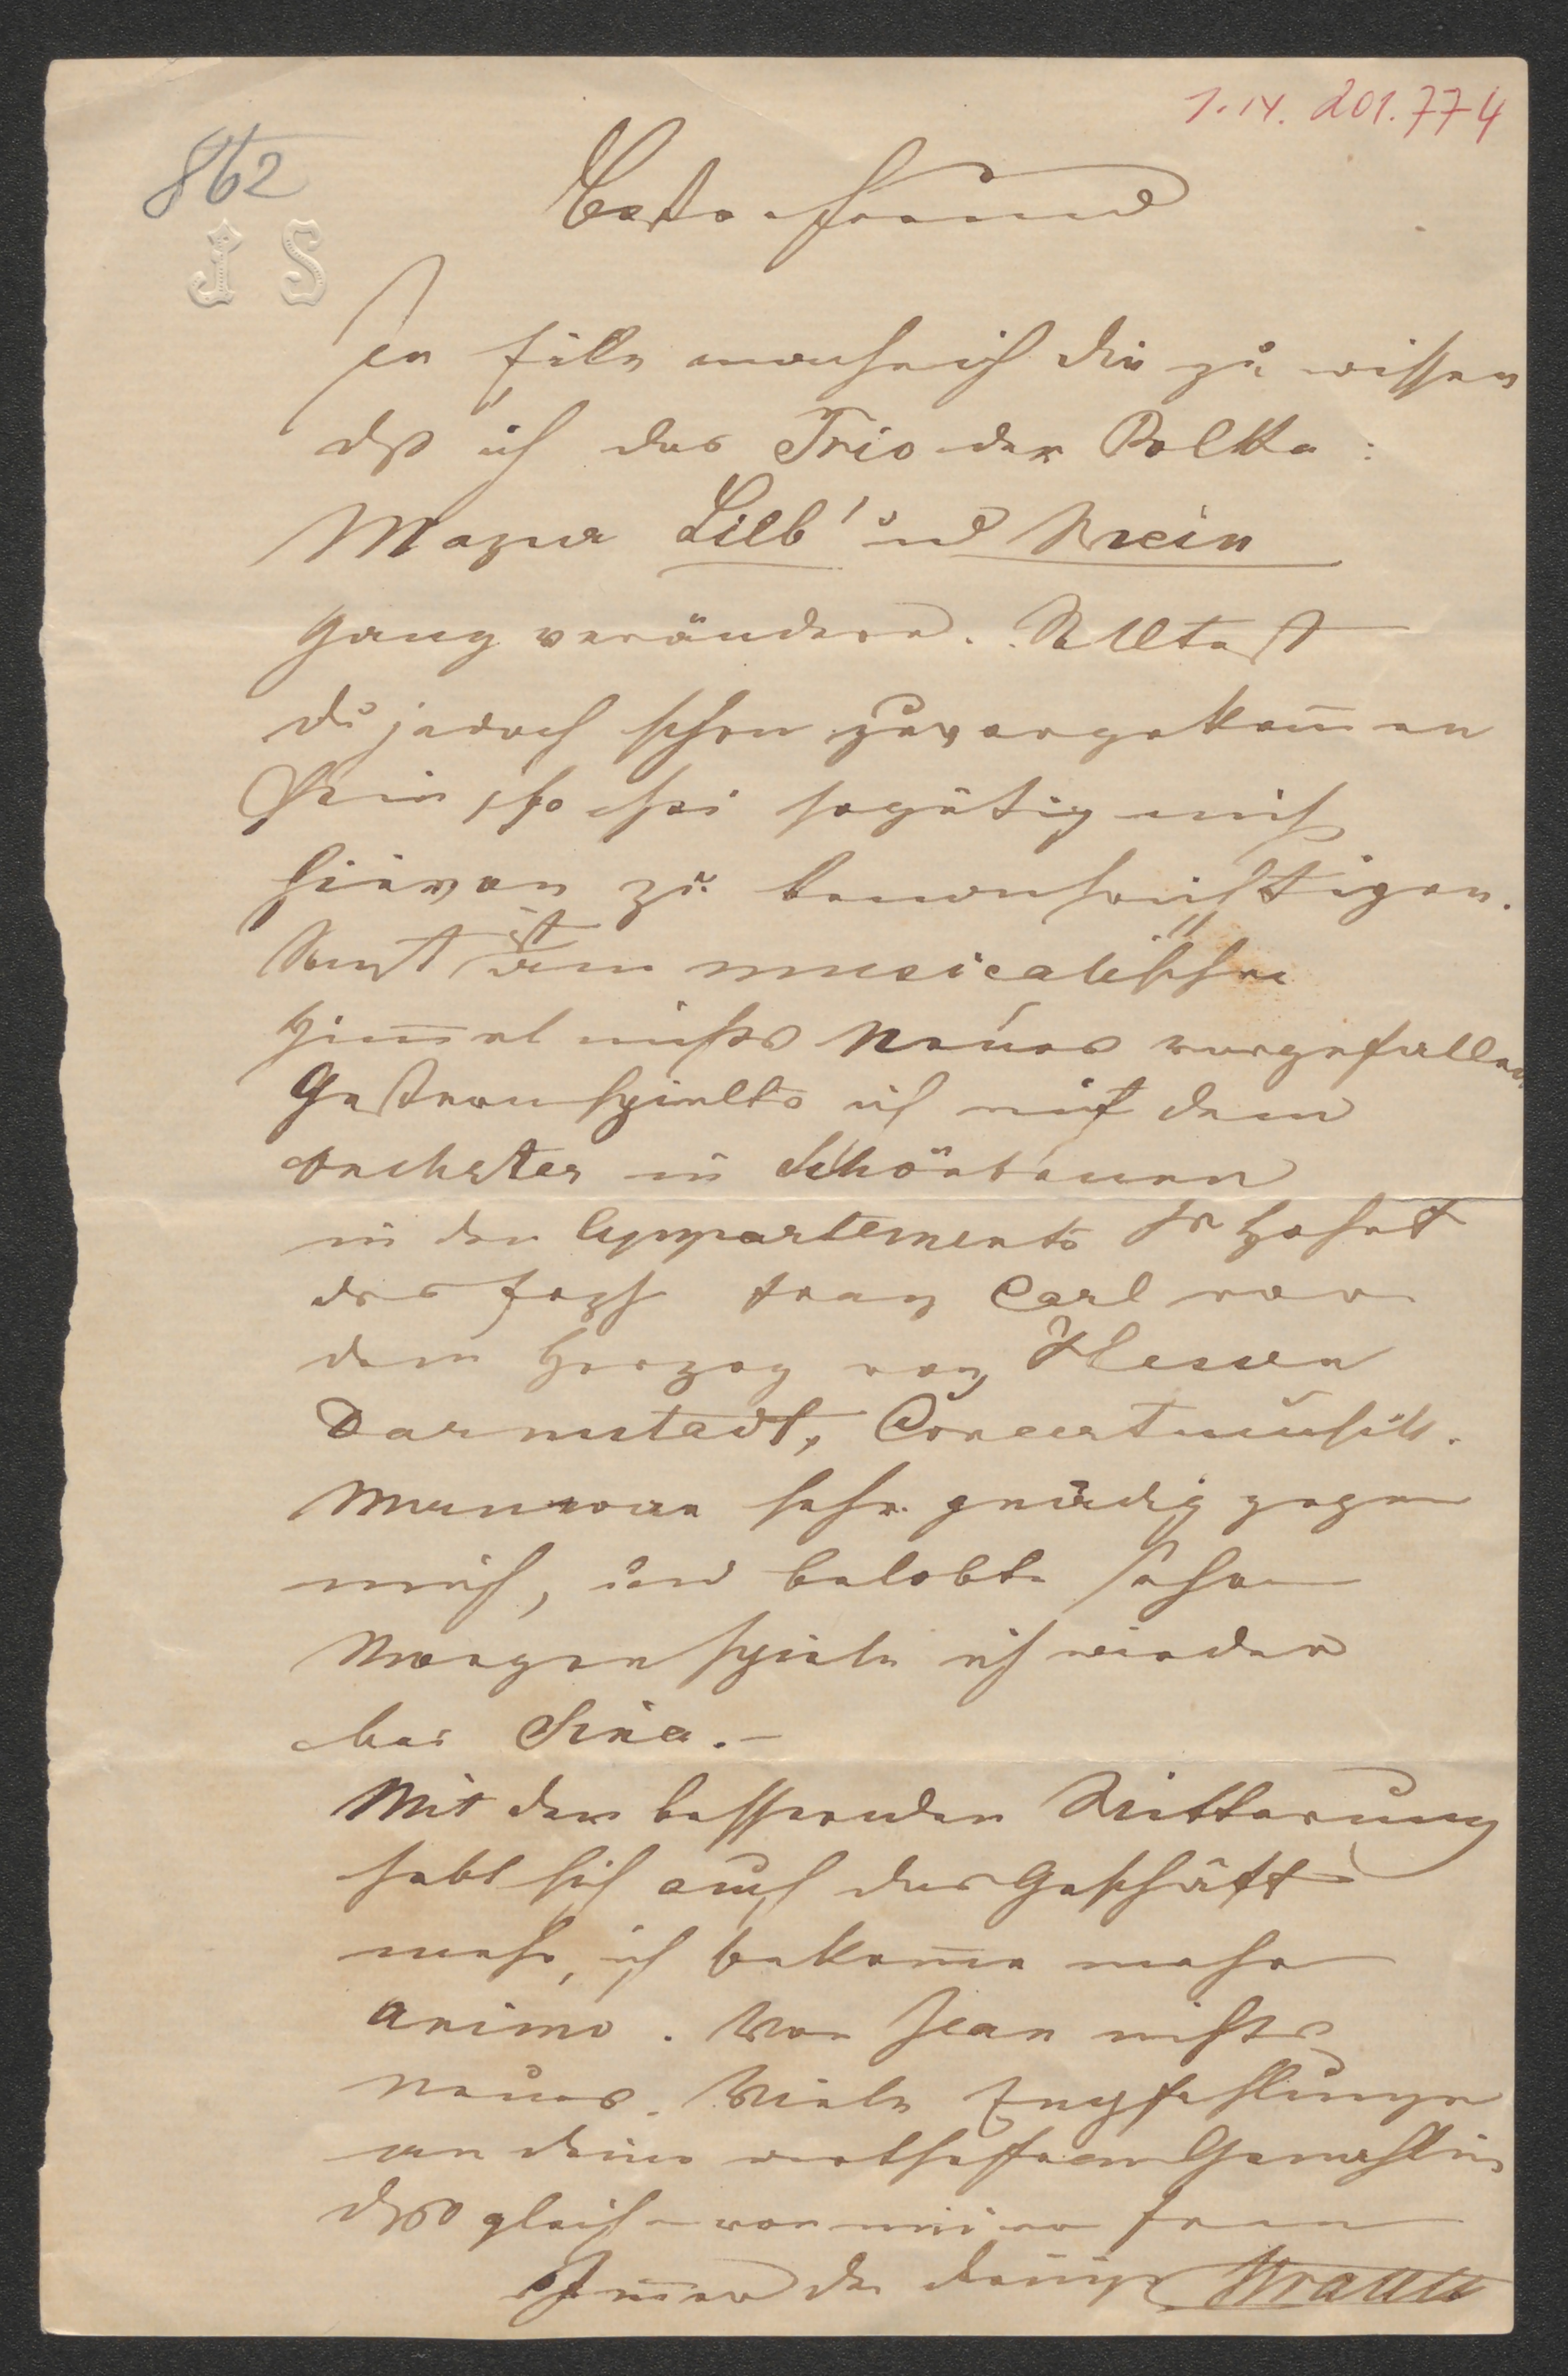 I.N. 201.774
862
J S
Bester Freund
In Eile mache ich dir zu wissen
dß ich das Trio der Polka:
Mazur Lieb' und Wein
ganz verändere. Solltest
du jedoch schon zuvorgekom̄en
sein, so sei so gütig mich
hievon zu benachrichtigen.
Sonst ist am musicalischen
Him̄el nichts Neues vorgefallen.
Gestern spielte ich mit dem
Orchester in Schönbrunn
in den Appartements Sr Hoheit
des Erzh Franz Carl vor
dem Herzog von Hessen
Darmstadt, Concertmusik.
Man war sehr gnädig gegen
mich, und belobte sehr
Morgen spiele ich wieder
bei Sina.–
Mit der bessernden Witterung
hebt sich auch das Geschäft
mehr, ich bekom̄e mehr
animo. Von Jean nichts
neues. Viele Empfehlungen
an deine Gemahlin
deßgleichen von meiner Frau
Im̄er der deinige Strauss